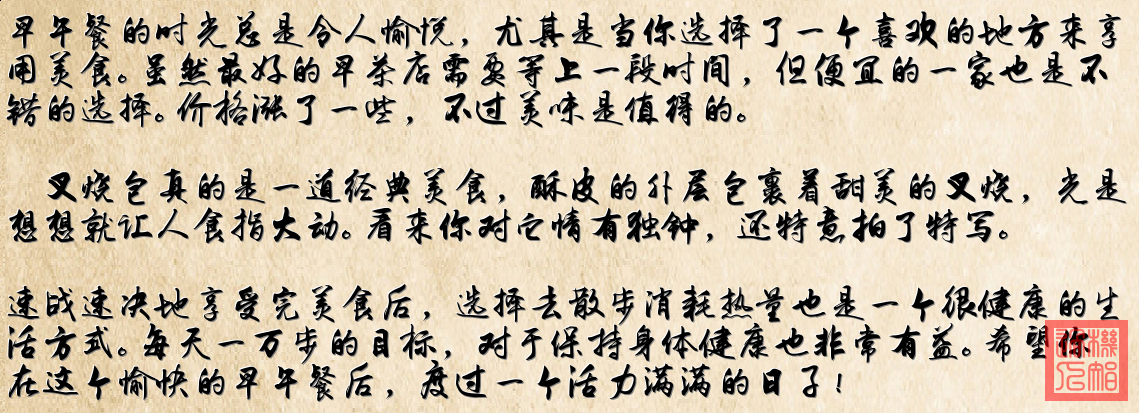 早午餐的时光总是令人愉悦，尤其是当你选择了一个喜欢的地方来享
用美食。虽然最好的早茶店需要等上一段时间，但便宜的一家也是不
错的选择。价格涨了一些，不过美味是值得的。
叉烧包真的是一道经典美食，酥皮的外层包裹着甜美的叉烧，光是
想想就让人食指大动。看来你对它情有独钟，还特意拍了特写。
速战速决地享受完美食后，选择去散步消耗热量也是一个很健康的生
活方式。每天一万步的目标，对于保持身体健康也非常有益。希望你
在这个愉快的早午餐后，度过一个活力满满的日子！